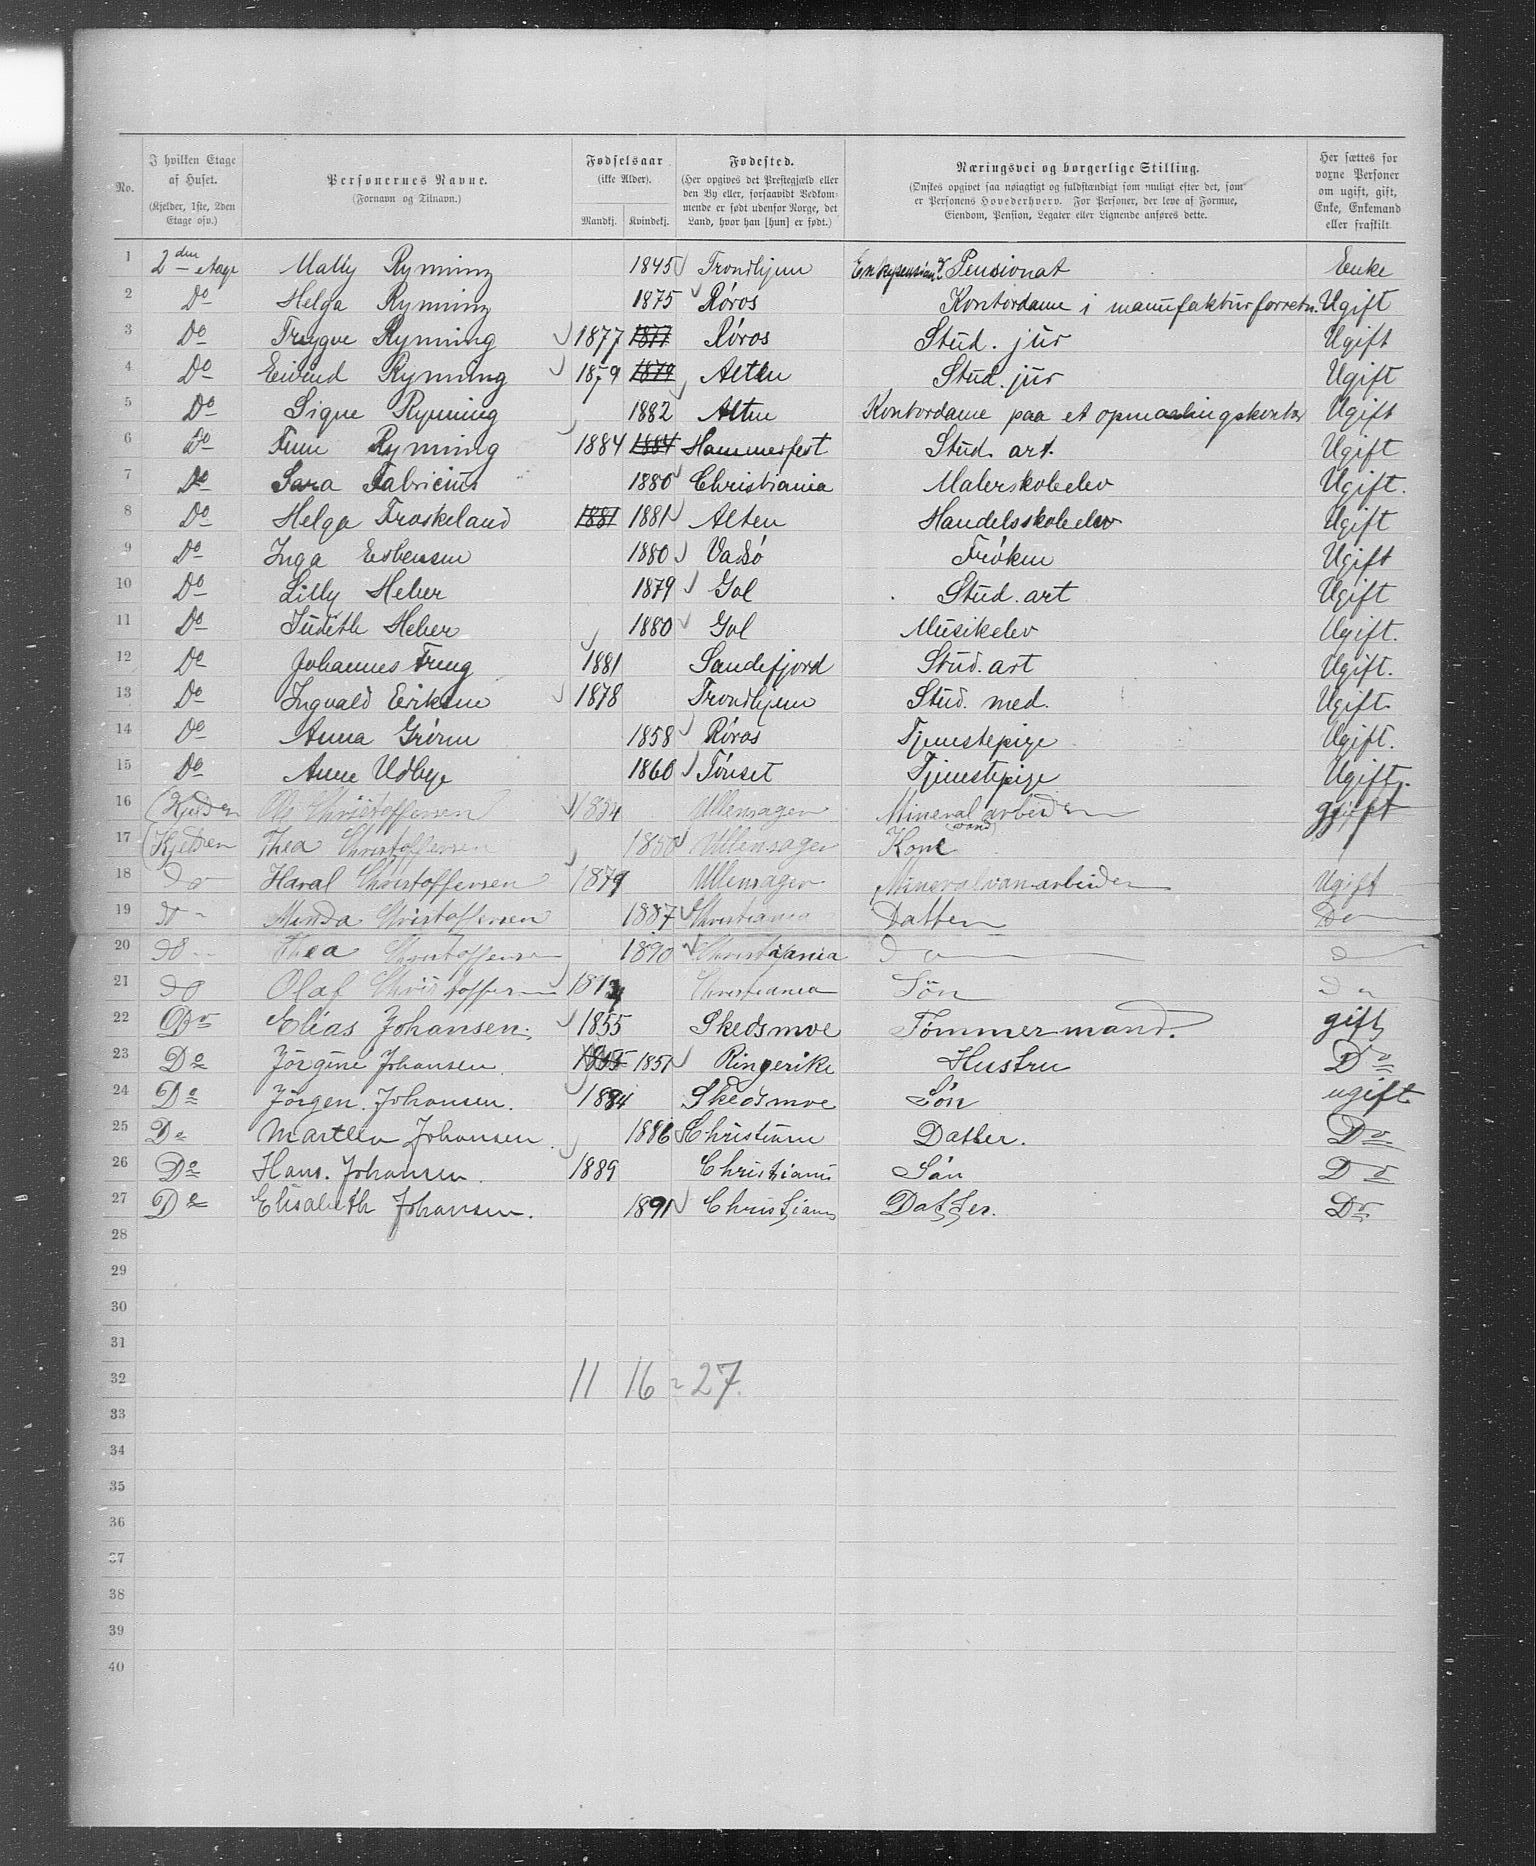 No.
I hvilken Etage af Huset. (Kjelder, 1ste, 2den Etage osv.)
Personernes Navne. (Fornavn og Tilnavn.)
Fødselsaar (ikke Alder). Mandkj. Kvindekj.
Fødested. (Her opgives det Prestegjæld eller den By eller, forsaavidt Vedkommende er født udenfor Norge, det Land, hvor han [hun] er født.)
Næringsvei og borgerlige Stilling. (Ønskes opgivet saa nøiagtigt og fuldstændigt som muligt efter det, som er Personens Hovederhverv. For Personer, der leve af Formue, Eiendom, Pension, Legater eller Lignende anføres dette.
Her sættes for voxne Personer om ugift, gift, Enke, Enkemand eller fraskilt
1 2den etage Mally Rynning 1845 Trondhjem Pensionat Enke
2 Do Helga Rynning 1875 Røros Kontordame i manufakturforretn. Ugift
3 Do Trygve Rynning 1877 1877 Røros Stud. jur Ugift
4 Do Eivind Rynning 1879 1879 Alten Stud. jur Ugift
5 Do Signe Rynning 1882 Alten Kontordame paa et opmaalingskontor Ugift
6 Do Finn Rynning 1884 1884 Hammerfest Stud. art. Ugift
7 Do Sara Fabricius 1880 Christiania Malerskoleelev Ugift.
8 Do Helga Fraskeland 1881 1881 Alten Handelsskoleelev Ugift
9 Do Inga Esbensen 1880 Vadsø Frøken Ugift
10 Do Lilly Heber 1879 Gol Stud. art Ugift
11 Do Judith Heber 1880 Gol Musikelev Ugift.
12 Do Johannes 1881 Sandefjord Stud. art Ugift.
13 Do Ingvald Eriksen 1878 Trondhjem Stud. med. Ugift.
14 Do Anna Grønn 1858 Røros Tjenestepige Ugift.
15 Do Anne Udbye 1860 Tønset Tjenestepige Ugift.
16 Kjelder Ole Christoffersen Ullensager Mineral arbeider gift
17 Kjelderen Thea Christoffersen 1850 Ullensager Kone
18 do Haral Christoffersen 1879 Ullensager Mineralvanarbeider Ugift
19 do Minda Christoffersen 1887 Christiania Datter Do
20 do Thea Christoffersen 1890 Christiania do do
21 do Olaf Christoffersen Christiania Søn do
22 Do Elias Johansen. 1855 Skedsmoe Tømmermand. gift
23 Do Jørgine Johansen. 1855 1851 Ringerike Hustru Do
24 Do Jørgen. Johansen. 1884 Skedsmoe Søn ugift
25 Do Johansen. 1886 Christiania Datter. Do
26 Do Hans. Johansen. 1889 Christiania Søn Do
27 Do Elisabeth Johansen. 1891 Christiania Datter. Do
28
29
30
31
32 11 16 = 27.
33
34
35
36
37
38
39
40